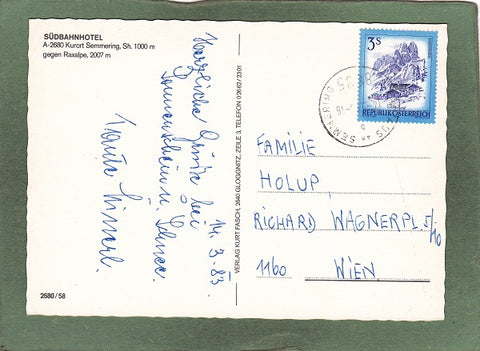 SÜDBAHNHOTEL
A-2680 Kurort Semmering, Sh. 1000 m
gegen Raxalpe, 2007 m
14.3.83.
Herzliche Grüße bei
Sonnenschein u. Schnee.
Traute
2680/58
VERLAG KURT FASCH, 2640 GLOGGNITZ, ZEILE 3, TELEFON 0 26 62 / 23 01
3 S
REPUBLIK ÖSTERREICH
SEMMERING
FAMILIE
HOLUP
RICHARD WAGNERPL. 5/10
1160 WIEN